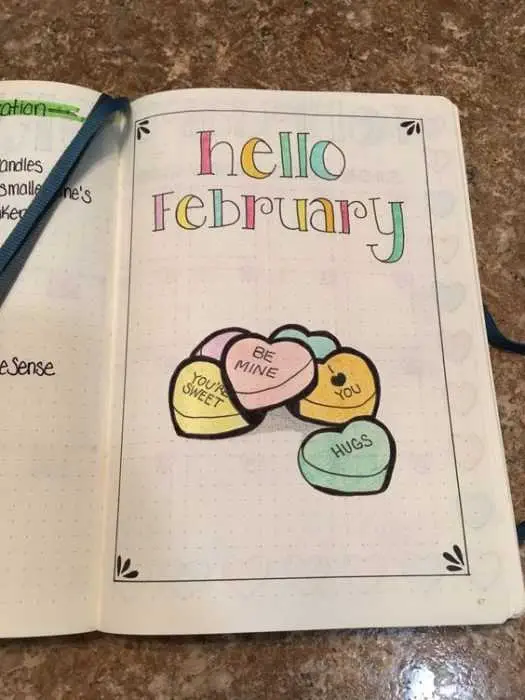 andles
smalle
ne's
eSense
hello
February
BE
MINE
YOU'RE
SWEET
I ♥
YOU
HUGS
67